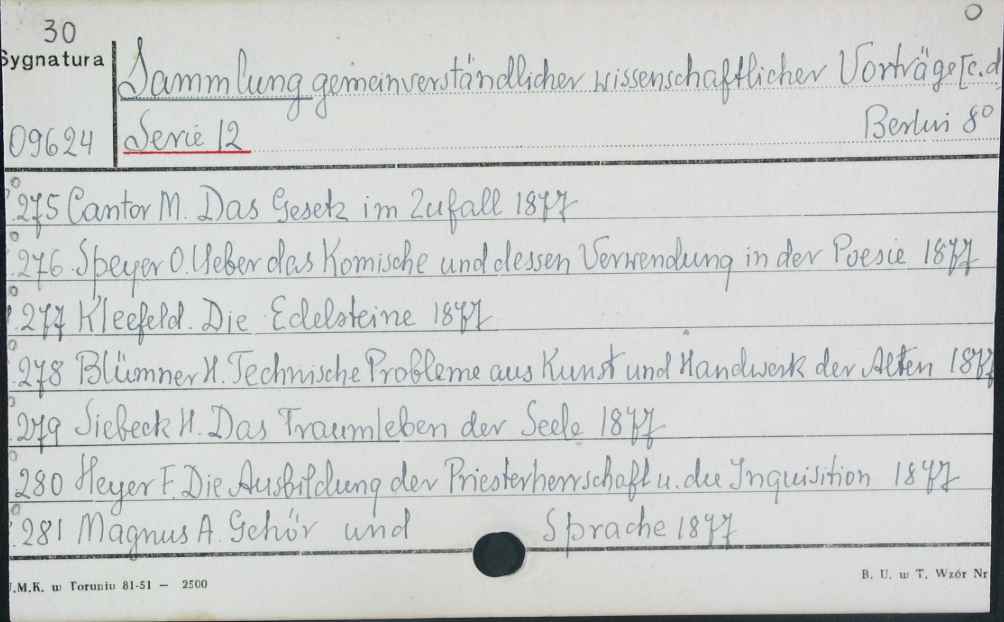 30
O
Sygnatura
Sammlung gemeinverständlicher wissenschaftlicher Vorträge [c.d
09624
Serie 12
Berlin 8°
275 Cantor M. Das Gesetz im Zufall 1877
276. Speyer O. Ueber das Komische und dessen Verwendung in der Poesie 1877
277 Kleefeld. Die Edelsteine 1877
278 Blümner H. Technische Probleme aus Kunst und Handwerk der Alten 1877
279 Siebeck H. Das Traumleben der Seele 1877
280 Heyer F. Die Ausbildung der Priesterherrschaft u. die Inquisition 1877
281 Magnus A. Gehör und Sprache 1877
.M.K. w Toruniu 81-51 — 2500
B. U. w T. Wzór Nr